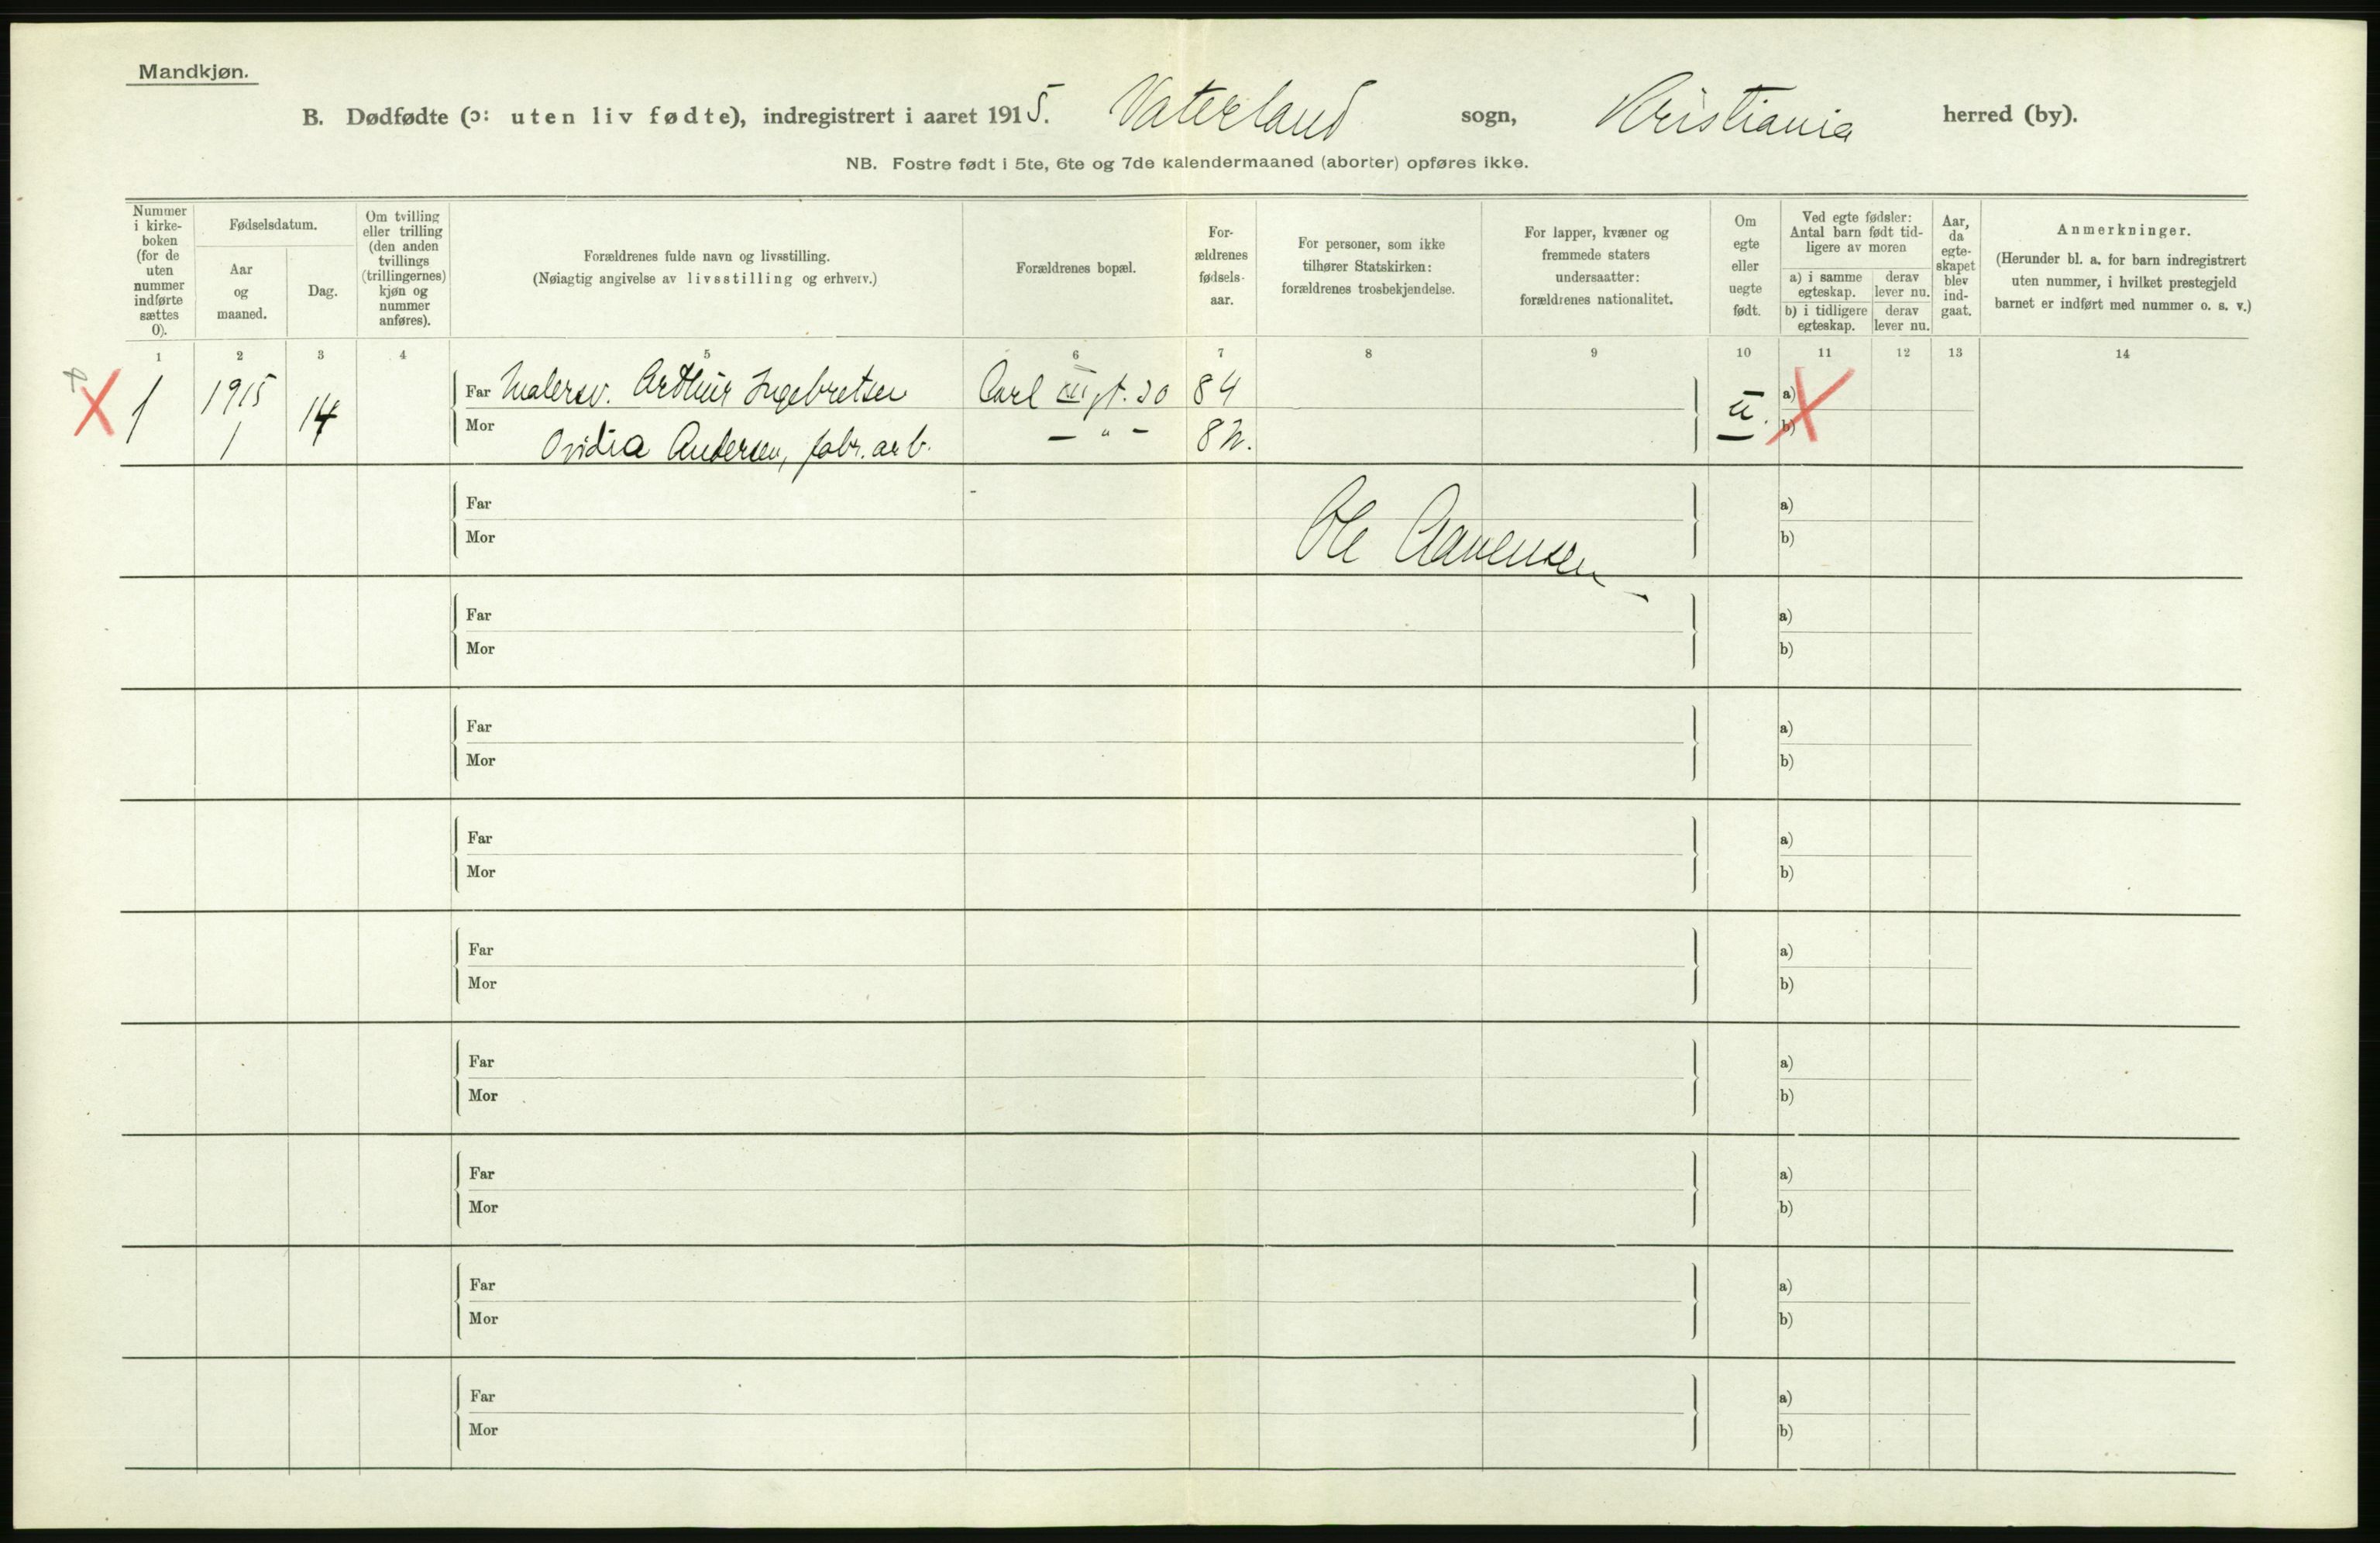 Mandkjøn.
B. Dødfødte (ɔ: uten liv fødte), indregistrert i aaret 1915. Vaterland sogn, Kristiania herred (by).
NB. Fostre født i 5te, 6te og 7de kalendermaaned (aborter) opføres ikke.
Nummer
i kirke-
boken
(for de
uten
nummer
indførte
sættes
0).
Fødselsdatum.
Aar
og
maaned.
Dag.
Om tvilling
eller trilling
(den anden
tvillings
(trillingernes)
kjøn og
nummer
anføres).
Forældrenes fulde navn og livsstilling.
(Nøiagtig angivelse av livsstilling og erhverv.)
Forældrenes bopæl.
For-
ældrenes
fødsels-
aar.
For personer, som ikke
tilhører Statskirken:
forældrenes trosbekjendelse.
For lapper, kvæner og
fremmede staters
undersaatter:
forældrenes nationalitet.
Om
egte
eller
uegte
født.
Ved egte fødsler:
Antal barn født tid-
ligere av moren
a) i samme
egteskap.
derav
lever nu.
b) i tidligere
egteskap.
derav
lever nu.
Aar,
da
egte-
skapet
blev
ind-
gaat.
Anmerkninger.
(Herunder bl. a. for barn indregistrert
uten nummer, i hvilket prestegjeld
barnet er indført med nummer o. s. v.)
1 2 3 4 5 6 7 8 9 10 11 12 13 14
1 1915 14 Far Malersv. Arthur Ingebretsen Carl XII gt. 20 84 u. a)
1 Mor Ovidia Andersen, fabr. arb. — " — 82. b)
Far a)
Mor Ole b)
Far a)
Mor b)
Far a)
Mor b)
Far a)
Mor b)
Far a)
Mor b)
Far a)
Mor b)
Far a)
Mor b)
Far a)
Mor b)
Far a)
Mor b)